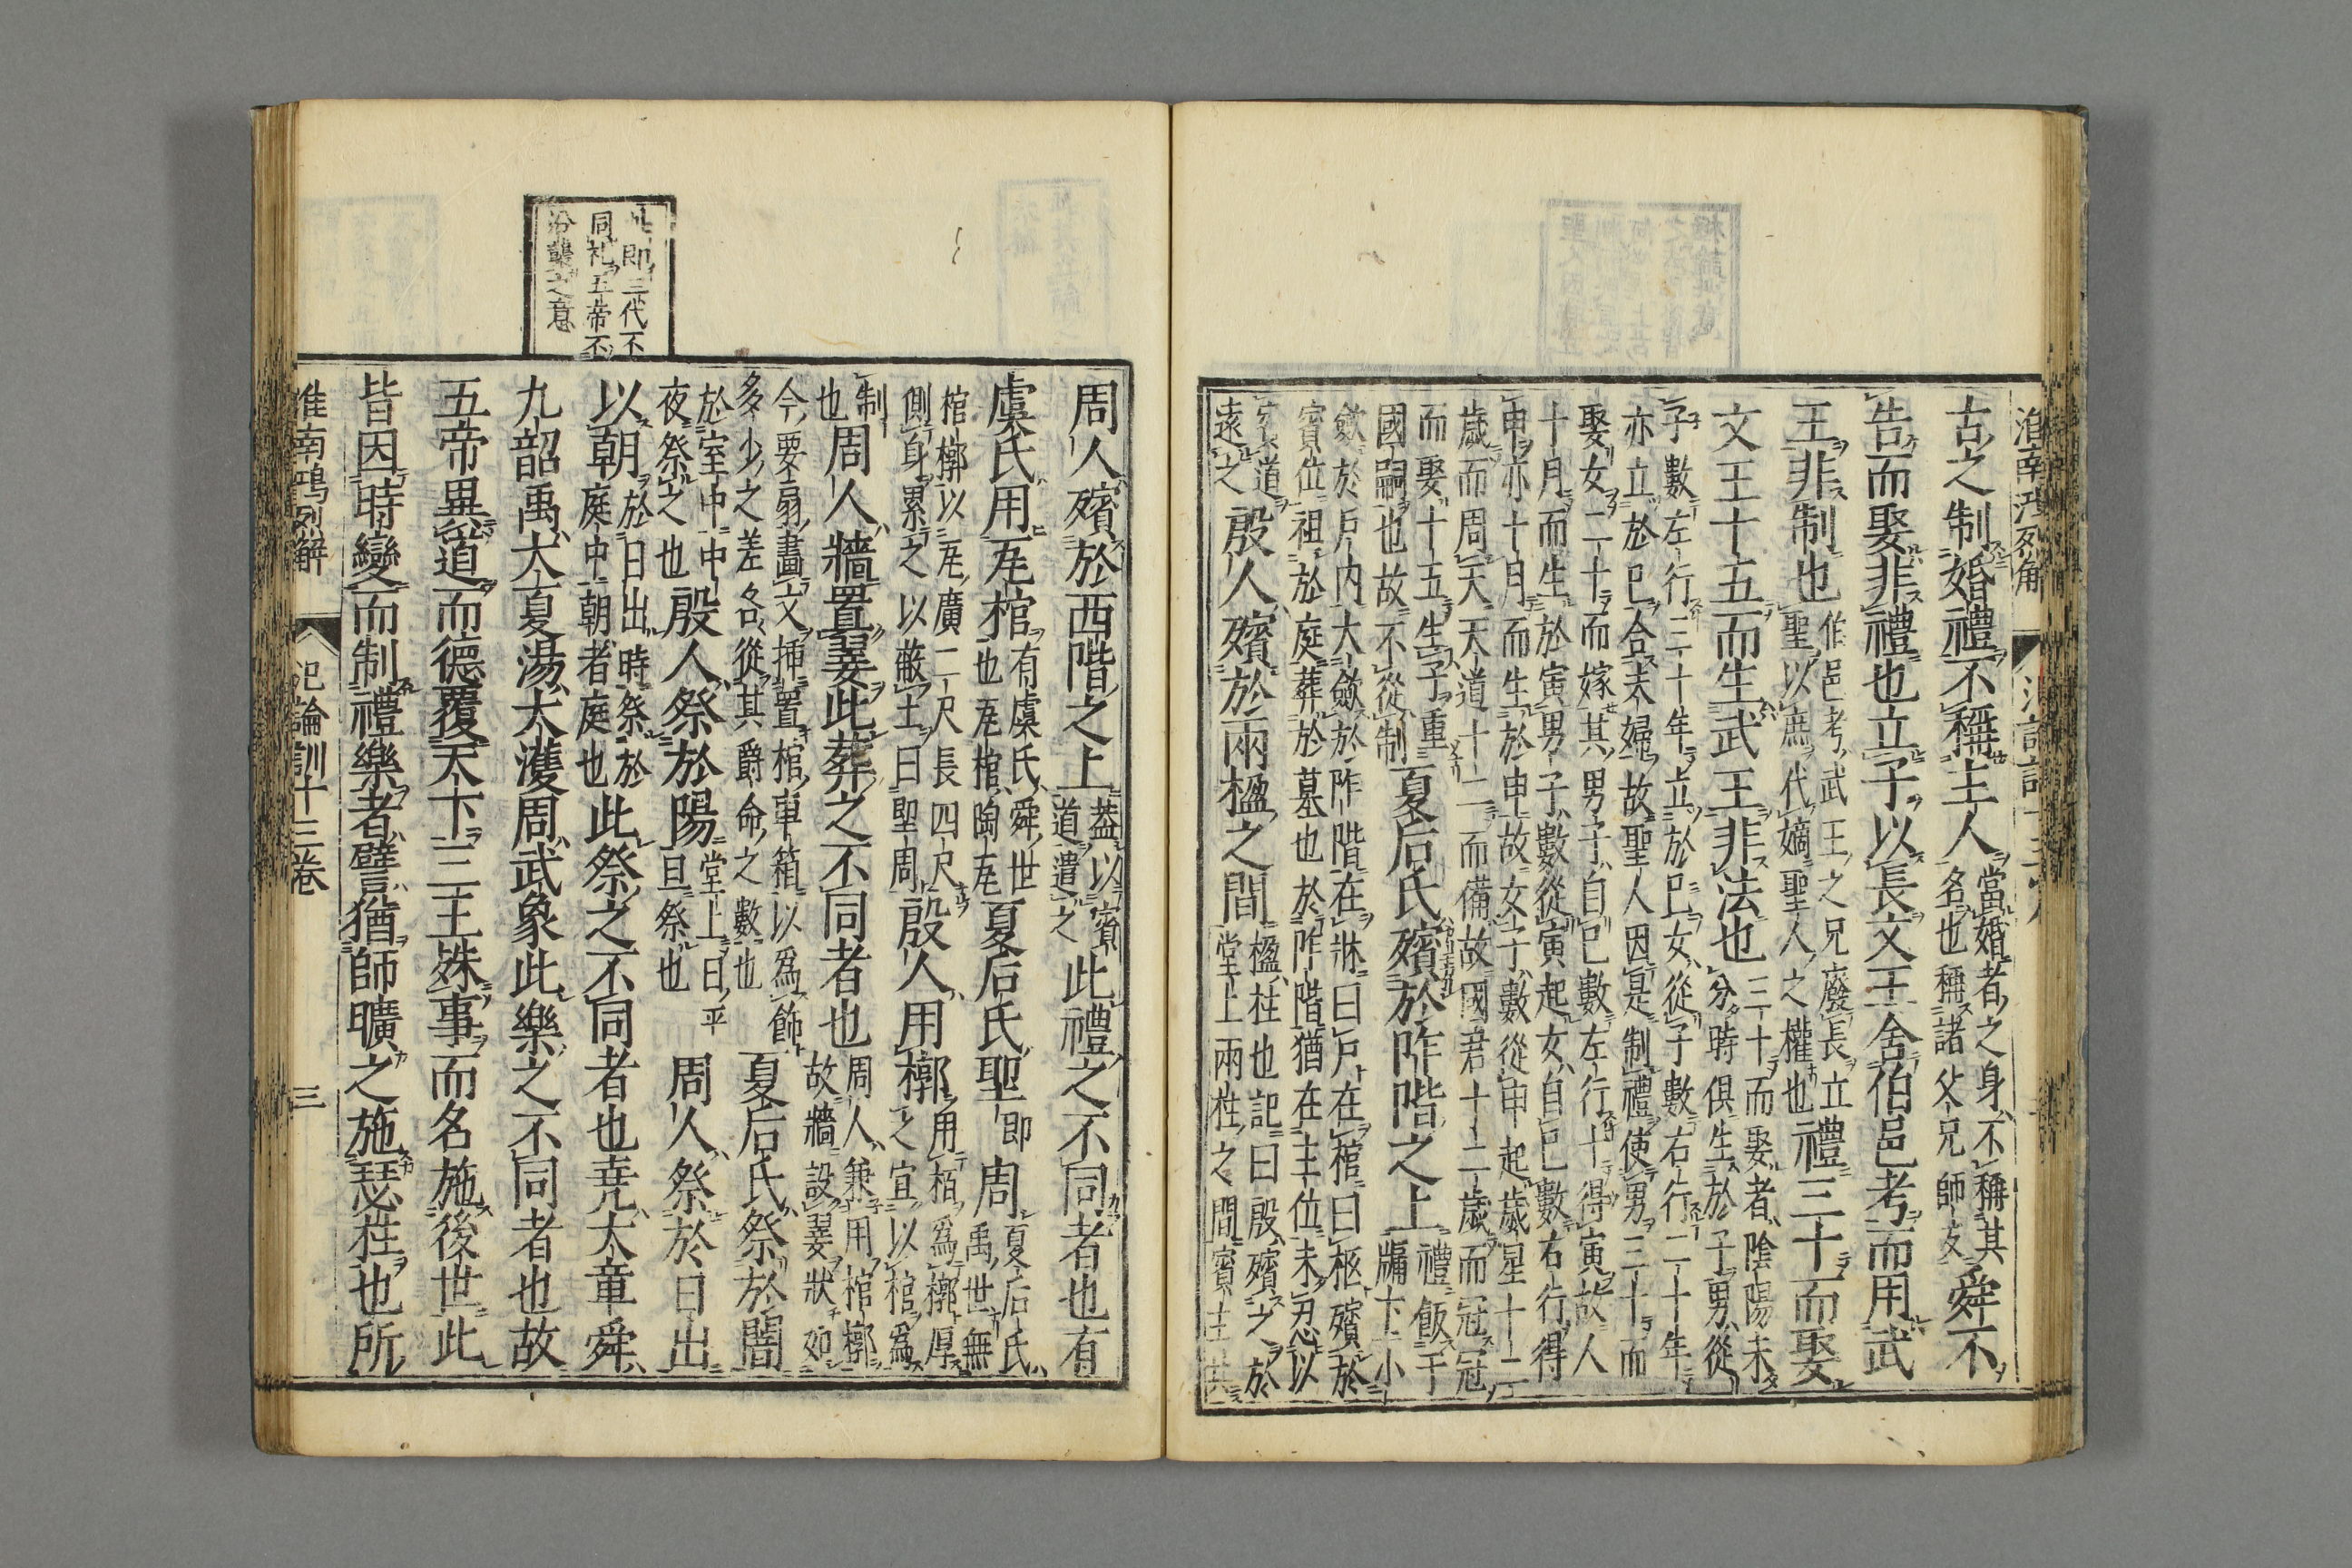 淮南鴻列解
古之制婚禮不稱主人當婚者之身不稱其名也稱諸父兄師友舜不
告而娶非禮也立子以長文王舍伯邑考而用武
王非制也伯邑考武王之兄廢長立聖以庶代嫡聖人之權也禮三十而娶
文王十五而生武王非法也三十而娶者陰陽未分時俱生於子男從
子數左行三十年立於巳女從子數右行二十年
亦立於巳合夫婦故聖人因是制禮使男三十而
娶女二十而嫁其男子自巳數左行十得寅故人
十月而生於寅男子數從寅起女自巳數右行得
申亦十月而生於申故女子數從申起歲星十二
歲而周天天道十二而備故國君十二歲而冠冠
而娶十五生子重國嗣也故不從制夏后氏殯於阼階之上禮飯于牖下小
斂於戶内大斂於阼階在牀曰尸在棺曰柩殯於
賓位祖於庭葬於墓也於阼階猶在主位未忍以
賓道遠之殷人殯於兩楹之間楹柱也記曰殷殯之於堂上兩柱之間賓主共
周人殯於西階之上蓋以賓道遣之此禮之不同者也有
虞氏用瓦棺有虞氏舜世也瓦棺陶瓦夏后氏聖即周夏后氏禹世無
棺槨以瓦廣二尺長四尺側身累之以蔽土曰聖周殷人用槨用柏爲槨厚之宜以棺爲
制也周人牆置翣此葬之不同者也周人兼用棺槨故牆設翣狀如
今要扇畫文插置棺車箱以爲飾多少之差各從其爵命之數也夏后氏祭於闇
於室中中夜祭之也殷人祭於陽堂上曰平旦祭也周人祭於日出
以朝於日出時祭於庭中朝者庭也此祭之不同者也堯大章舜
九韶禹大夏湯大濩周武象此樂之不同者也故
五帝異道而德覆天下三王殊事而名施後世此
皆因時變而制禮樂者譬猶師曠之施瑟柱也所
此即三代不
同礼五帝不
沿襲之意
淮南鴻列解 氾論訓十三卷 三